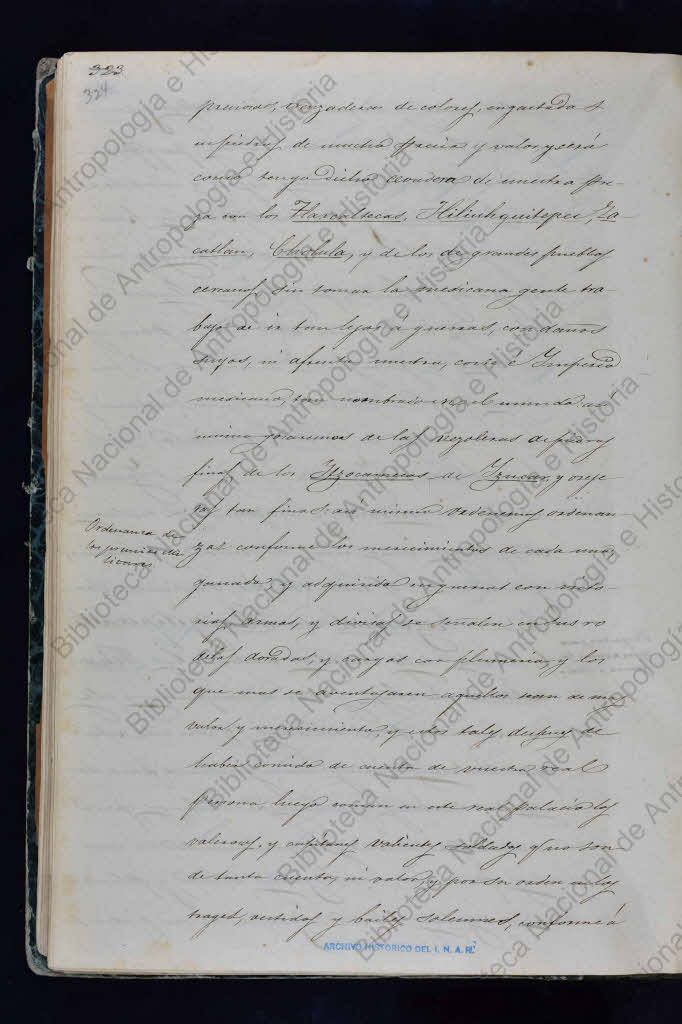 323
324
preciosas, venzaderas de colores, engastadas
en piedras de mucha precia y valor y será
como tenga dicho cevadera de nuestra pre-
za con los Tlaxcaltecas, Hiliuhquitepes, Za
catlán, Cholula, y de los de grandes pueblos
cercanos sin tomar la mexicana gente tra-
bajo de ir tan lejos á guerras, con daños
suyos, ni afrenta nuestra, corte é Imperio
mexicano, tan nombrado en el mundo: asi
mismo gozaremos de las vezoleras de piedras
finas de los Ytzocamecas de Yzucar, y oreje
ras tan finas: así mismo ordenemos ordenan
Ordenanza de
los premios mi
litares
zas conforme los merecimientos de cada uno,
ganado, y adquirido en guerras con vito-
rias, armas, y divisas se señalen en sus ro
delas doradas, y cargas con plumeria, y los
que mas se aventajaren aquellos sean de mas
valor y merecimiento, y estos tales despues de
haber comido de cuenta de vuestra real
persona, luego coman en este real palacio los
valerosos, y capitanes valientes soldados q no son
de tanta cuenta, ni valor, y por su orden en los
trages, vestidos y bailes solemnes, conforme á
ARCHIVO HISTORICO DEL I. N. A. H.
Biblioteca Nacional de Antropología e Historia